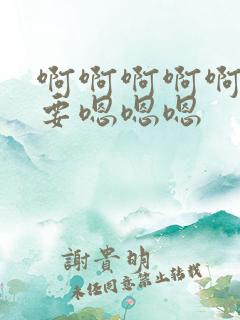 啊啊啊啊啊
要嗯嗯嗯
謝貴明
未任同意禁止转载